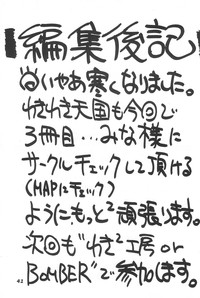 編集後記
いやあ寒くなりました。
わきわき天国も今回で
3冊目…みな様に
サークルチェックして頂ける
(MAPにチェック)
ようにもっと²頑張ります。
次回も"わき²工房or
BOMBER"で参加します。
42